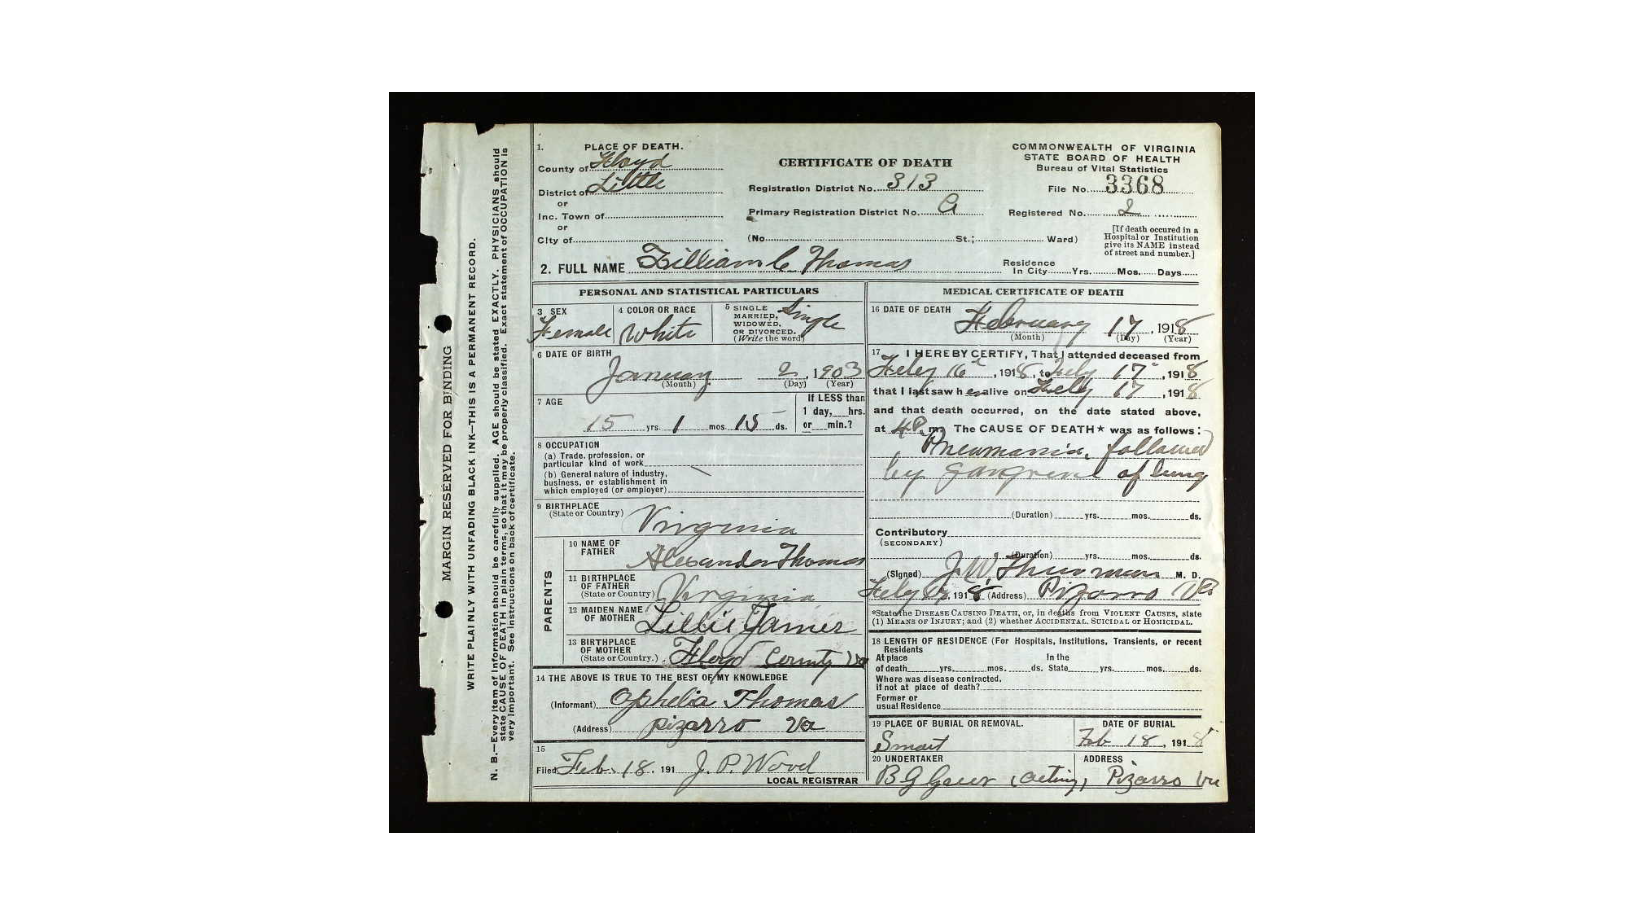 MARGIN RESERVED FOR BINDING
WRITE PLAINLY WITH UNFADING BLACK INK—THIS IS A PERMANENT RECORD.
N. B.—Every item of information should be carefully supplied. AGE should be stated EXACTLY. PHYSICIANS should
state CAUSE OF DEATH in plain terms, so that it may be properly classified. Exact statement of OCCUPATION is
very important. See instructions on back of certificate.
1. PLACE OF DEATH.
County of Floyd
District of Little
or
Inc. Town of
or
City of
CERTIFICATE OF DEATH
Registration District No. 313
Primary Registration District No. A
(No. St.; Ward)
COMMONWEALTH OF VIRGINIA
STATE BOARD OF HEALTH
Bureau of Vital Statistics
File No. 3368
Registered No. 2
[If death occured in a
Hospital or Institution
give its NAME instead
of street and number.]
2. FULL NAME Lillian C Thomas
Residence
In City Yrs. Mos. Days
PERSONAL AND STATISTICAL PARTICULARS
3 SEX
Female
4 COLOR OR RACE
White
5 SINGLE
MARRIED,
WIDOWED,
OR DIVORCED.
(Write the word)
Single
6 DATE OF BIRTH
January 2, 1903
(Month) (Day) (Year)
7 AGE
15 yrs. 1 mos. 15 ds.
If LESS than
1 day, hrs.
or min.?
8 OCCUPATION
(a) Trade, profession, or
particular kind of work
(b) General nature of industry,
business, or establishment in
which employed (or employer)
9 BIRTHPLACE
(State or Country) Virginia
PARENTS
10 NAME OF
FATHER Alexander Thomas
11 BIRTHPLACE
OF FATHER
(State or Country) Virginia
12 MAIDEN NAME
OF MOTHER Lillie
13 BIRTHPLACE
OF MOTHER
(State or Country.) Floyd County Va
14 THE ABOVE IS TRUE TO THE BEST OF MY KNOWLEDGE
(Informant) Ophelia Thomas
(Address) Pizarro Va
15
Filed Feb. 18. 191 J. P. Wood
LOCAL REGISTRAR
MEDICAL CERTIFICATE OF DEATH
16 DATE OF DEATH February 17, 1918
(Month) (Day) (Year)
17 I HEREBY CERTIFY, That I attended deceased from
Feby 16, 1918, to Feby 17, 1918
that I last saw her alive on Feby 17, 1918
and that death occurred, on the date stated above,
at 4 P. m. The CAUSE OF DEATH* was as follows:
Pneumonia, followed
by gangrene of lung
(Duration) yrs. mos. ds.
Contributory
(SECONDARY)
(Duration) yrs. mos. ds.
(Signed) J. W. Thurman M. D.
Feby, 1918 (Address) Pizarro Va
*State the DISEASE CAUSING DEATH, or, in deaths from VIOLENT CAUSES, state
(1) MEANS OF INJURY; and (2) whether ACCIDENTAL, SUICIDAL or HOMICIDAL.
18 LENGTH OF RESIDENCE (For Hospitals, Institutions, Transients, or recent
Residents
At place In the
of death yrs. mos. ds. State yrs. mos. ds.
Where was disease contracted,
if not at place of death?
Former or
usual Residence
19 PLACE OF BURIAL OR REMOVAL.
Smart
DATE OF BURIAL
Feb 18, 1918
20 UNDERTAKER
B G (acting)
ADDRESS
Pizarro Va